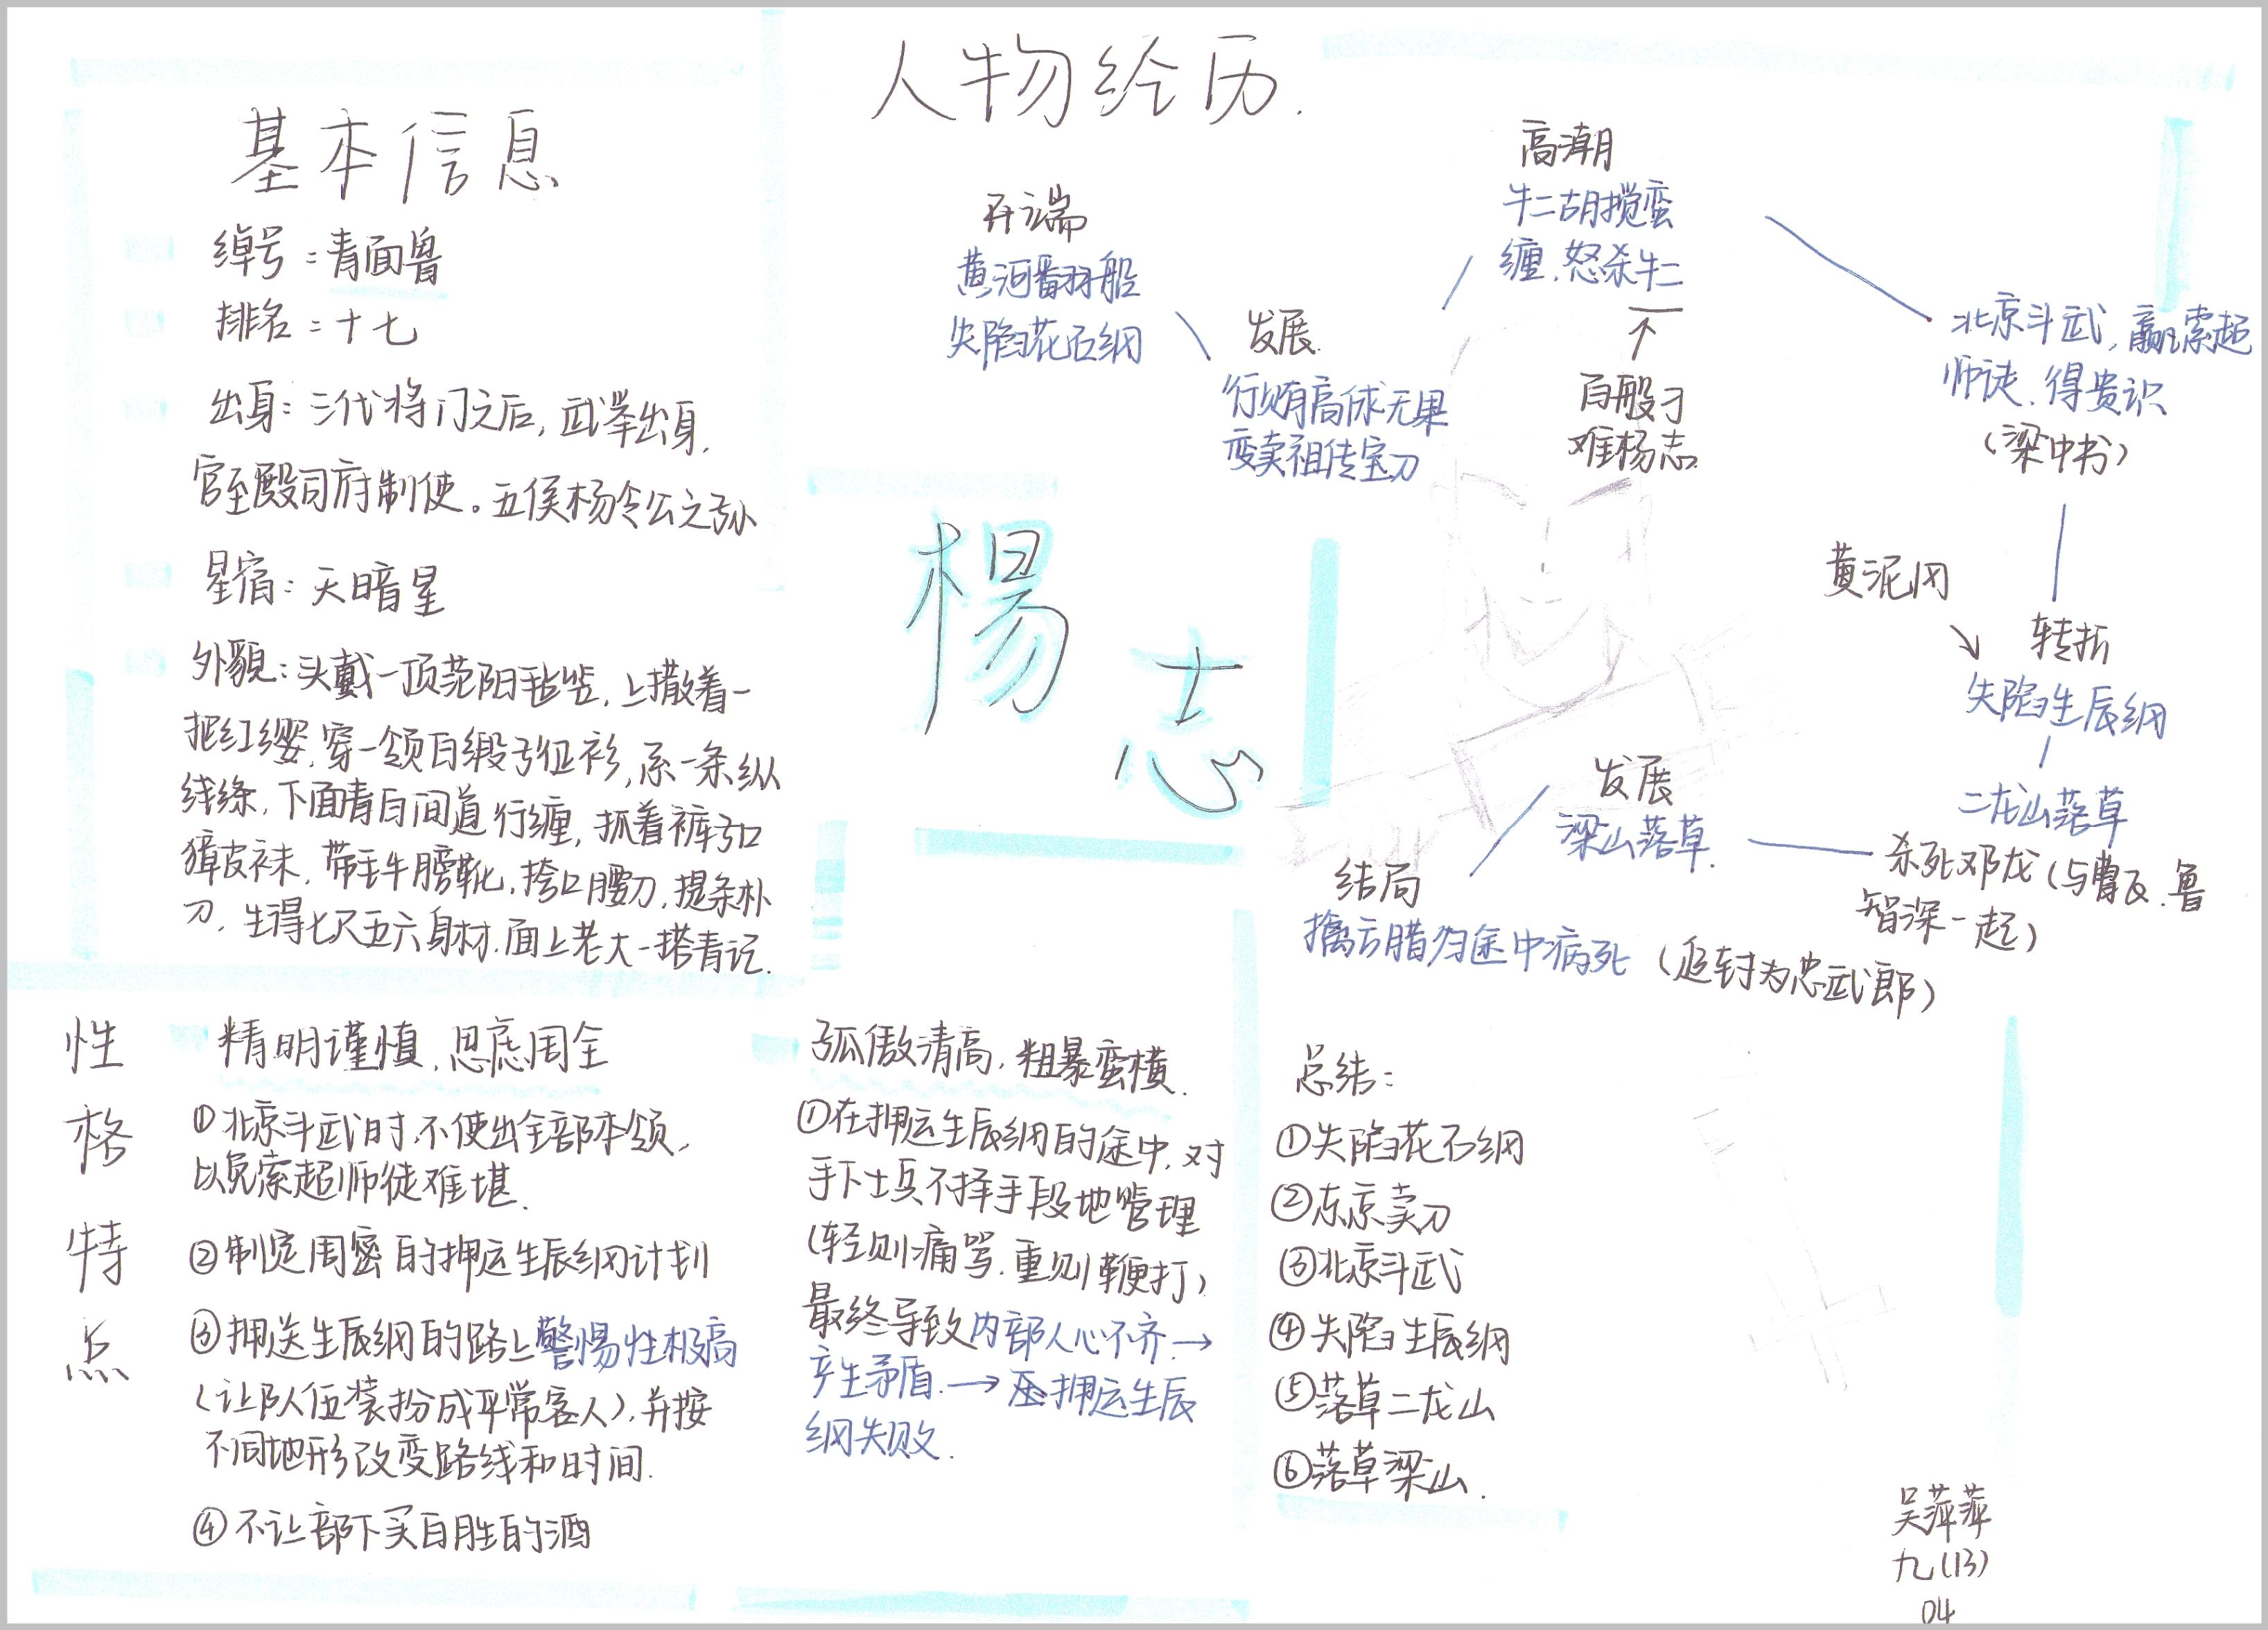 人物经历.
基本信息
绰号：青面兽
排名：十七
出身：三代将门之后，武举出身，
官至殿司府制使。五侯杨令公之孙
星宿：天暗星
外貌：头戴一顶范阳毡笠，上撒着一
把红缨，穿一领白缎子征衫，系一条纵
线绦，下面青白间道行缠，抓着裤子口
獐皮袜，带毛牛膀靴，挎口腰刀，提条朴
刀，生得七尺五六身材，面上老大一搭青记.
开端
黄河翻船
失陷花石纲
发展.
行贿高俅无果
变卖祖传宝刀
高潮
牛二胡搅蛮
缠，怒杀牛二
百般刁
难杨志
北京斗武，赢索超
师徒，得贵识
（梁中书）
黄泥冈
转折
失陷生辰纲
二龙山落草
杀死邓龙（与曹正、鲁
智深一起）
发展
梁山落草.
结局
擒方腊归途中病死（追封为忠武郎）
楊志
性格特点
精明谨慎，思虑周全
①北京斗武时，不使出全部本领，
以免索超师徒难堪.
②制定周密的押运生辰纲计划
③押送生辰纲的路上警惕性极高
（让队伍装扮成平常客人），并按
不同地形改变路线和时间.
④不让部下买白胜的酒
孤傲清高，粗暴蛮横.
①在押运生辰纲的途中，对
手下士兵不择手段地管理
（轻则痛骂，重则鞭打）
最终导致内部人心不齐→
产生矛盾.→押运生辰
纲失败.
总结：
①失陷花石纲
②东京卖刀
③北京斗武
④失陷生辰纲
⑤落草二龙山
⑥落草梁山.
吴萍萍
九(13)
04